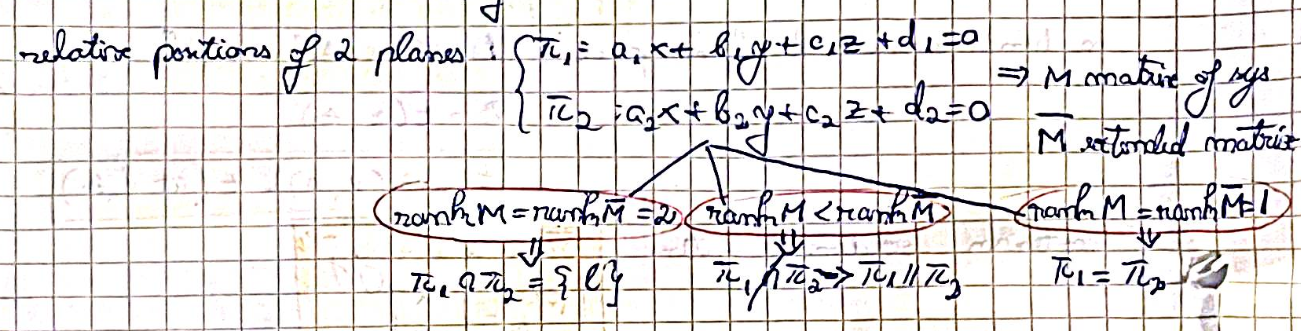 relative positions of 2 planes : { π₁ = a₁x + b₁y + c₁z + d₁ = 0
π₂ : a₂x + b₂y + c₂z + d₂ = 0
⇒ M matrix of sys
M̅ extended matrix
rank M = rank M̅ = 2   rank M < rank M̅   rank M = rank M̅ = 1
⇓   ⇓   ⇓
π₁ ∩ π₂ = { l }   π₁ ∩̸ π₂ → π₁ ∥ π₂   π₁ = π₂